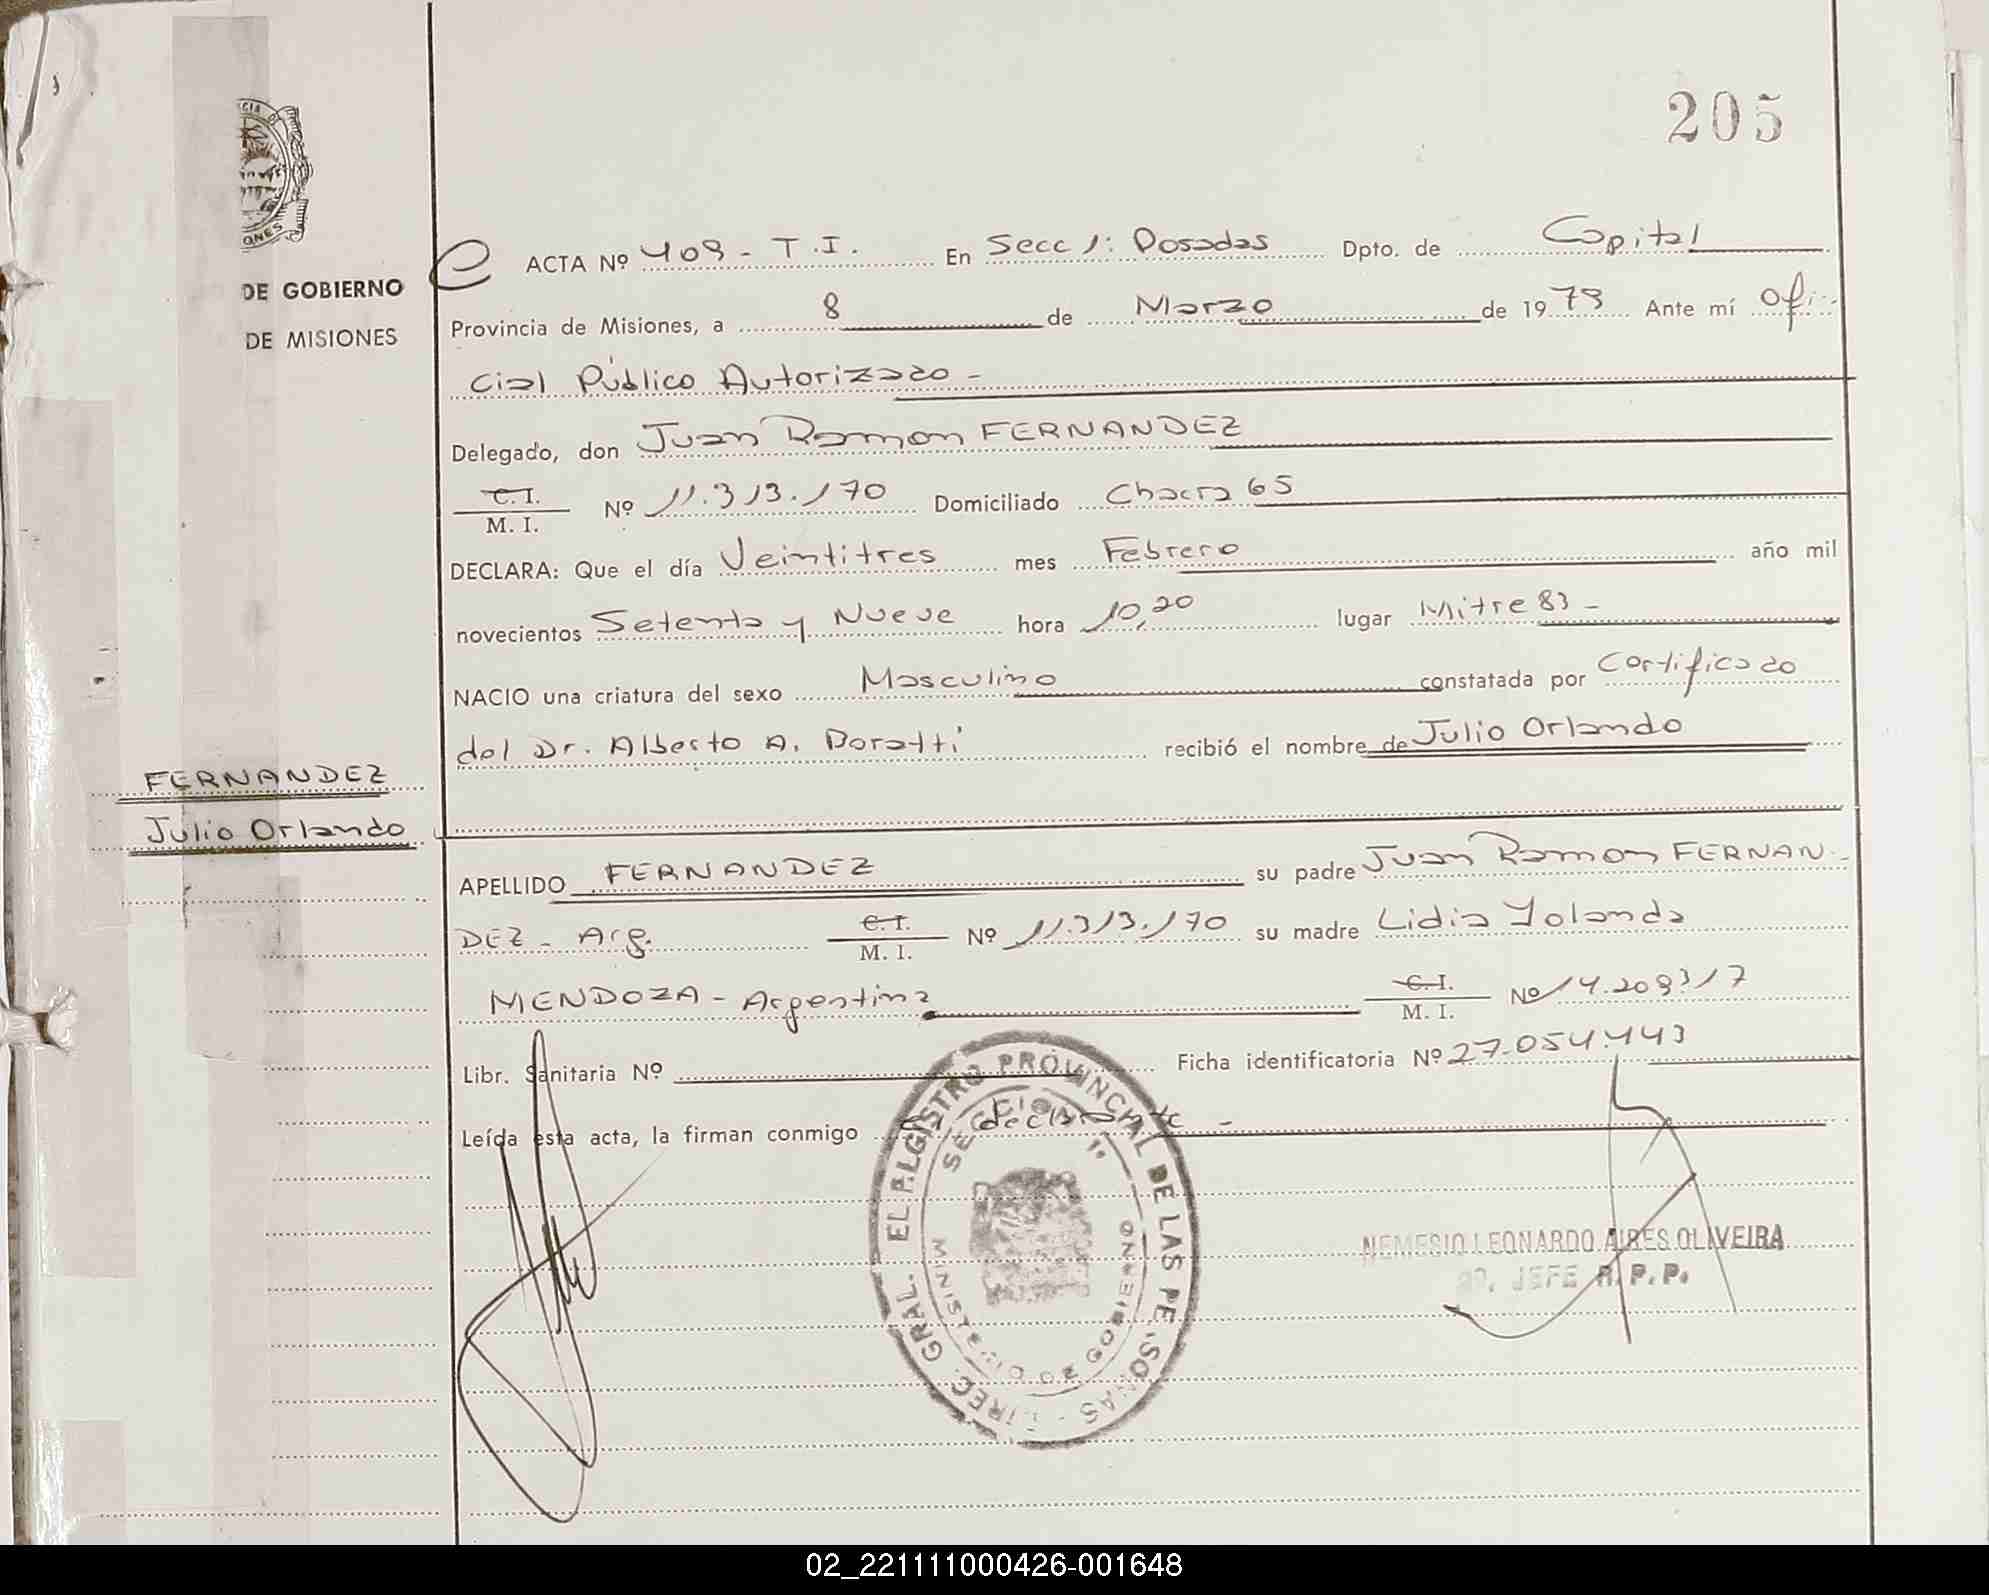 205
ACTA Nº 409 - T.I. En Secc 1: Posadas Dpto. de Capital
DE GOBIERNO
Provincia de Misiones, a 8 de Marzo de 1979 Ante mí Ofi-
DE MISIONES
cial Público Autorizado -
Delegado, don Juan Ramon FERNANDEZ
C.I.
M. I. Nº 11.313.170 Domiciliado Chacra 65
DECLARA: Que el día Veintitres mes Febrero año mil
novecientos Setenta y Nueve hora 10,20 lugar Mitre 83 -
NACIO una criatura del sexo Masculino constatada por Certificado
del Dr. Alberto A. Doratti recibió el nombre de Julio Orlando
FERNANDEZ
Julio Orlando
APELLIDO FERNANDEZ su padre Juan Ramon FERNAN-
DEZ - Arg. C.I. M. I. Nº 11.313.170 su madre Lidia Yolanda
MENDOZA - Argentina C.I. M. I. Nº 14.209317
Libr. Sanitaria Nº Ficha identificatoria Nº 27.054.443
Leída esta acta, la firman conmigo El declarante -
DIREC. GRAL. REGISTRO PROVINCIAL DE LAS PERSONAS
SECCION 1ª
MINISTERIO DE GOBIERNO
NEMESIO LEONARDO AIRES OLIVEIRA
JEFE R. P. P.
02_221111000426-001648